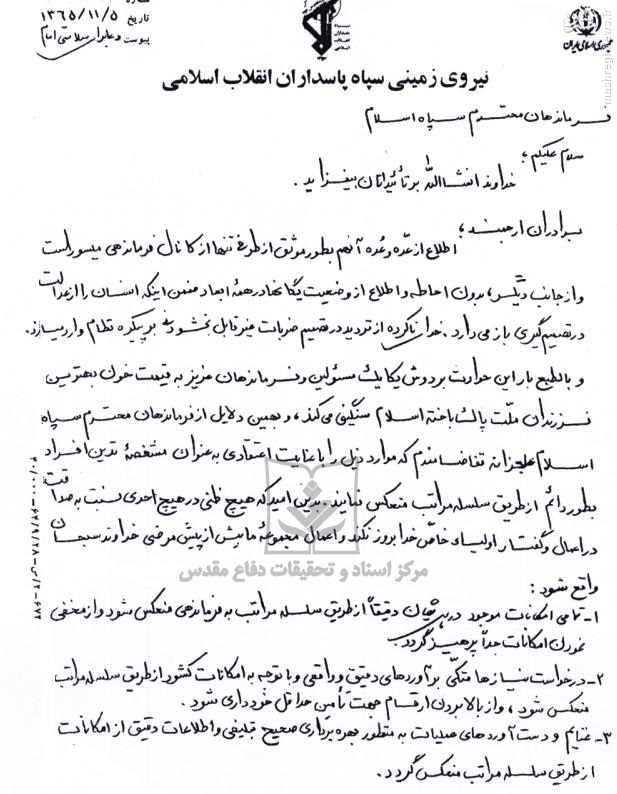 شماره
تاریخ ۱۳۶۵/۱۱/۵
پیوست دعا برای سلامتی امام
سپاه پاسداران انقلاب اسلامی
جمهوری اسلامی ایران
mashreghnews.ir
نیروی زمینی سپاه پاسداران انقلاب اسلامی
فرماندهان محترم سپاه اسلام
سلام علیکم؛
خداوند انشاالله بر تأئیداتتان بیفزاید.
برادران ارجمند؛
اطلاع از عدّه و عُده آنهم بطور موثق از طرفی تنها از کانال فرماندهی میسور است
و از جانب دیگر، بدون احاطه و اطلاع از وضعیت یگانها در همهٔ ابعاد ضمن اینکه انسان را از عدالت
در تصمیم گیری باز می دارد. خدا ناکرده از تردید در تصمیم ضربات غیر قابل بخشودنی بر پیکره نظام وارد میسازد.
و بالطبع بار این حوادث بر دوش یکایک مسئولین و فرماندهان عزیز به قیمت خون بهترین
فرزندان ملّت پاکباخته اسلام سنگینی می کند، و بهمین دلایل از فرماندهان محترم سپاه
اسلام عاجزانه تقاضامندم که موارد ذیل را با عنایت اعتقادی به عنوان مشخصهٔ تدین افراد
بطور دائم از طریق سلسله مراتب منعکس نمایند. بدین امید که هیچ ظنی در هیچ احدی نسبت به صداقت
در اعمال و گفتار اولیاء خاصّ خدا بروز نکند و اعمال مجموعهٔ ما بیش از پیش مرضی خداوند سبحان
واقع شود:
۱- تمامی امکانات موجود در یگان دقیقاً از طریق سلسله مراتب به فرماندهی منعکس شود و از مخفی
نمودن امکانات جداً پرهیز گردد.
۲- درخواست نیازها متکّی بر آوردهای دقیق و واقعی و با توجه به امکانات کشور از طریق سلسله مراتب
منعکس شود، و از بالا بردن ارقام جهت تأمین حداقل خودداری شود.
۳- غنایم و دست آوردهای عملیات به منظور بهره برداری صحیح تبلیغی و اطلاعات دقیق از امکانات
از طریق سلسله مراتب منعکس گردد.
مرکز اسناد و تحقیقات دفاع مقدس